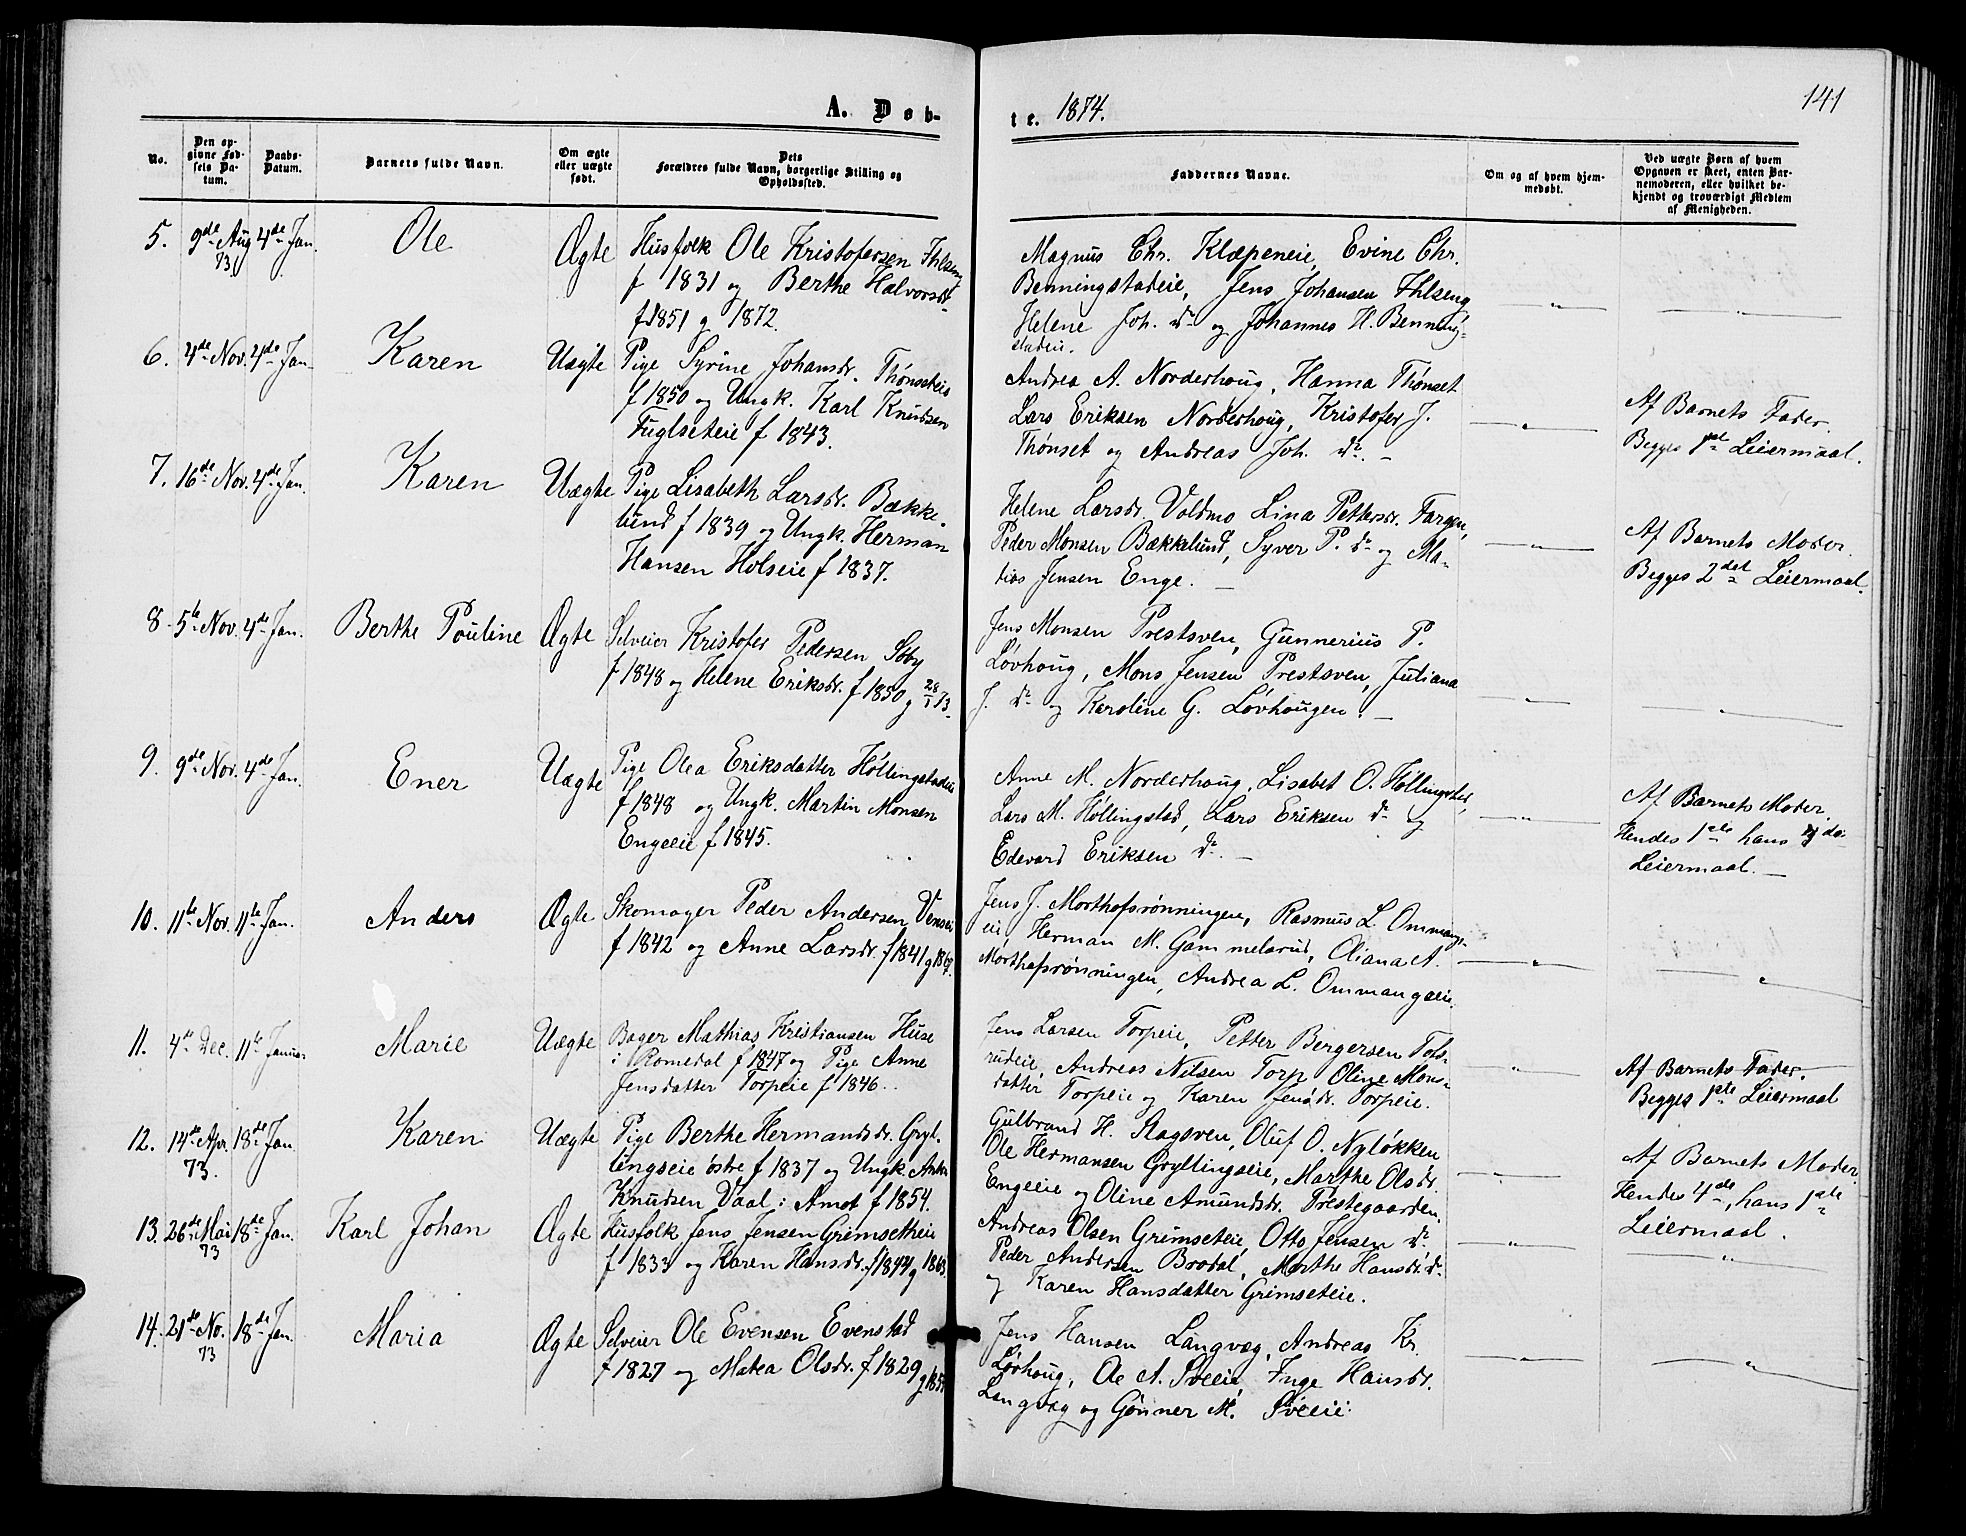 A. Døb-
te. 1874.
141
No.
Den op-
givne Fød-
sels Da-
tum.
Daabs-
Datum.
Barnets fulde Navn.
Om ægte
eller uægte
født.
Dets
Forældres fulde Navn, borgerlige Stilling og
Opholdssted.
Faddernes Navne.
Om og af hvem hjem-
medøbt.
Ved uægte Børn af hvem
Opgaven er skeet, enten Bar-
nemoderen, eller hvilket be-
kjendt og troværdigt Medlem
af Menigheden.
5. 9de Aug 73 4de Jan. Ole Ægte
Husfolk Ole Kristofersen Ihlseng
f 1831 og Berthe Halvorsdr.
f 1851 g 1872.
Magnus Chr. Klæpeneie, Evine Chr.
Benningstadeie, Jens Johansen Ihlseng
Helene Joh. do og Johannes H. Benning-
stadeie.
6. 4de Nov. 4de Jan. Karen Uægte
Pige Syrine Johansdr. Thønseteie
f 1850 og Ungk. Karl Knudsen
Fuglseteie f 1843.
Andrea A. Norderhoug, Hanna Thønset
Lars Eriksen Norderhoug, Kristofer J.
Thønset og Andreas Joh. do. -
Af Barnets Fader.
Begges 1ste Leiermaal.
7. 16de Nov. 4de Jan. Karen Uægte
Pige Lisabeth Larsdr. Bække-
lund f 1839 og Ungk. Herman
Hansen Holseie f 1837.
Helene Larsdr. Voldmo Lina Pettersdr. Fargen,
Peder Monsen Bækkelund, Syver P. do og Ma-
tias Jensen Enge. -
Af Barnets Moder.
Begges 2det Leiermaal.
8. 5te Nov. 4de Jan. Berthe Pouline Ægte
Selveier Kristofer Pedersen Soby
f 1848 og Helene Eriksdr. f 1850 g 28/1 73.
Jens Monsen Prestsven, Gunnerius P.
Løvhoug, Mons Jensen Prestsven, Juliana
J. do og Karoline G. Løvhougen. -
9. 9de Nov. 4de Jan. Ener Uægte
Pige Olea Eriksdatter Høllingstadeie
f 1848 og Ungk. Martin Monsen
Engeeie f 1845.
Anne M. Norderhoug, Lisabet O. Høllingstad,
Lars M. Høllingstad, Lars Eriksen do og
Edevard Eriksen do. -
Af Barnets Moder.
Hendes 1ste hans 2de
Leiermaal. -
10. 11te Nov. 11te Jan. Anders Ægte
Skomager Peder Andersen Venseie
f 1842 og Anne Larsdr. f 1841 g
Jens J. Morthofsrønningen, Rasmus L. Ommangs-
eie, Herman M. Gammelsrud, Oliana A.
Morthofsrønningen, Andrea L. Ommangseie.
11. 4de Dec. 11te Januar Marie Uægte
Bager Mathias Kristiansen Huse
i Romedal f 1847 og Pige Anne
Jensdatter Torpeie f 1846.
Jens Larsen Torpeie, Petter Bergersen Tofs-
rudeie, Andreas Nilsen Torp Oline Mons-
datter Torpeie og Karen Jensdr. Torpeie.
Af Barnets Fader.
Begges 1ste Leiermaal
12. 14de Apr. 73. 18de Jan Karen Uægte
Pige Berthe Hermandsdr. Gryl-
lingseie østre f 1837 og Ungk.
Knudsen Vaal i Amot f 1854.
Gulbrand H. Stagsven, Oluf O. Nyløkken
Ole Hermansen Gryllingseie, Marthe Olsdr.
Engeeie og Oline Amundsdr. Prestegaarden.
Af Barnets Moder.
Hendes 4de, hans 1ste
Leiermaal.
13. 26de Mai 73 18de Jan. Karl Johan Ægte
Husfolk Jens Jensen Grimsetheie
f 1833 og Karen Hansdr. f 1844 g 1863.
Andreas Olsen Grimseteie, Otto Jensen do.
Peder Andersen Brodal, Marthe Hansdr. do
og Karen Hansdatter Grimseteie.
14. 21de No. 73 18de Jan. Maria Ægte
Selveier Ole Evensen Evenstad
f 1827 og Matea Olsdr. f 1829 g
Jens Hansen Langvæg, Andreas Kr.
Løvhoug, Ole A. Sveeie, Inge Hansdr.
Langvæg og Gunner M. Sveeie.